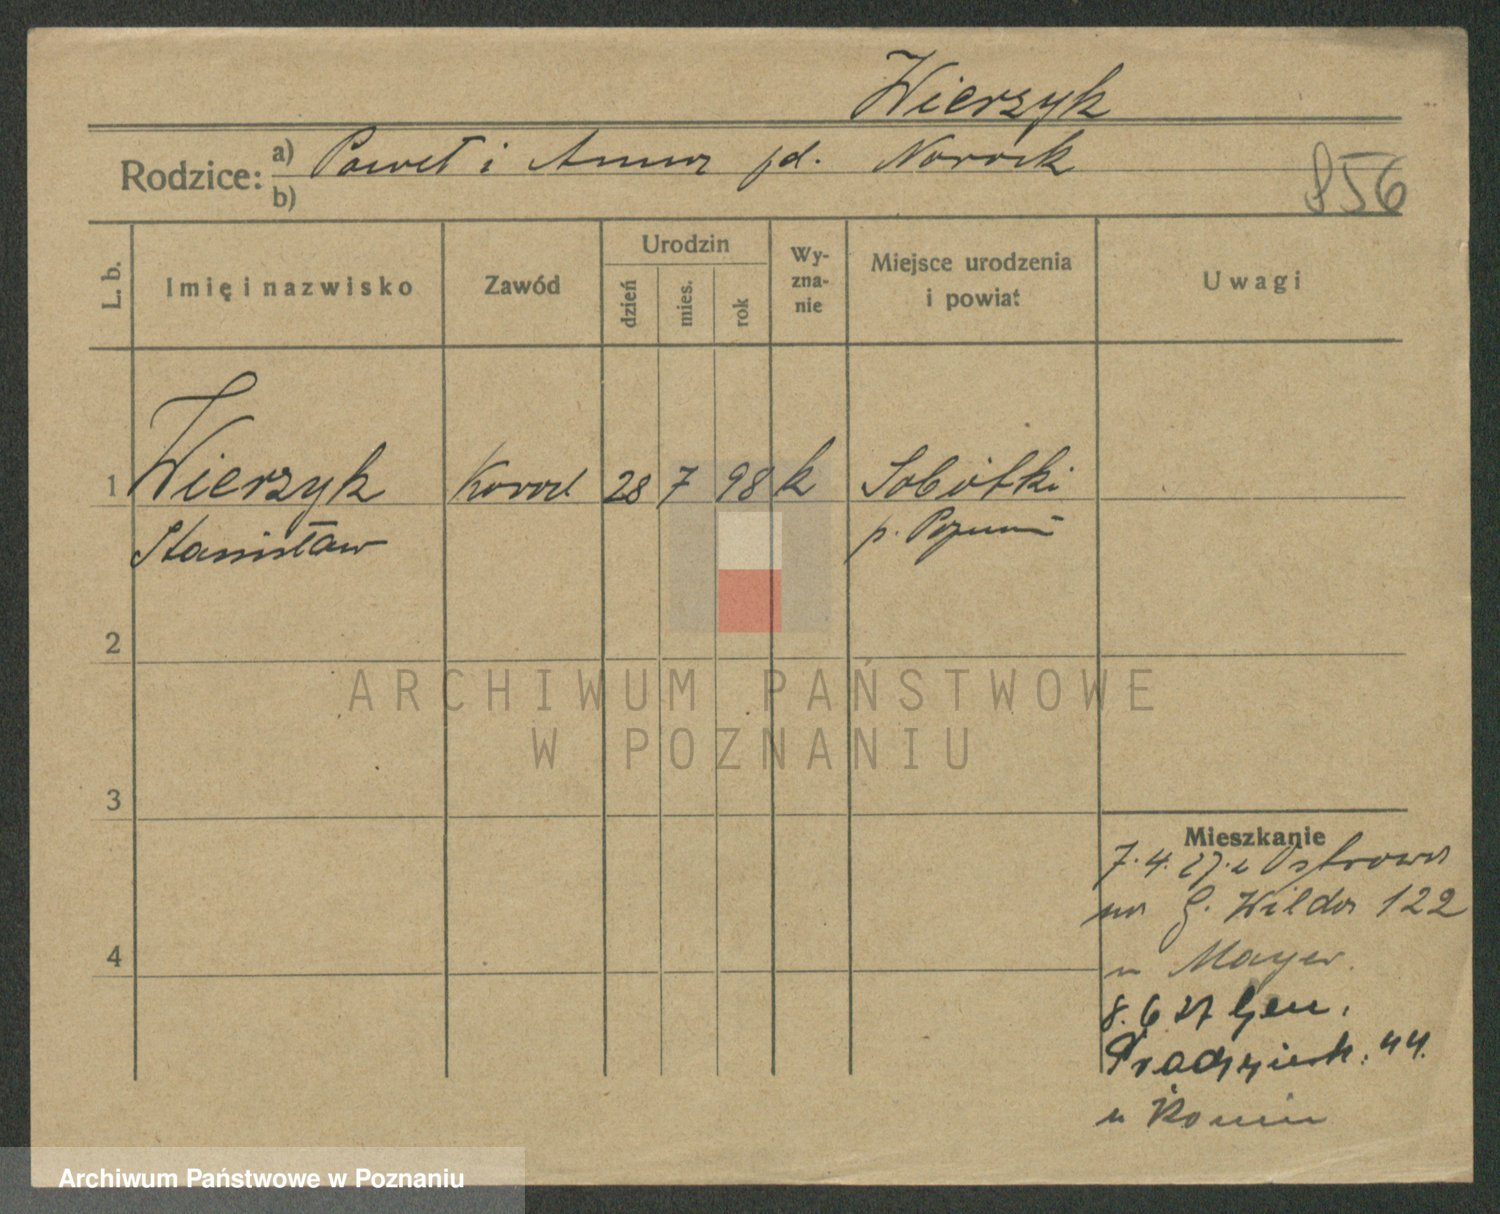 Wierzyk
Rodzice: a) Paweł i Anna pd. Nowak
b)
856
L. b.
Imię i nazwisko
Zawód
Urodzin
dzień
mies.
rok
Wy-
zna-
nie
Miejsce urodzenia
i powiat
Uwagi
1 Wierzyk 28 7 98 k Sobótki
Stanisław p. Poznań
2
ARCHIWUM PAŃSTWOWE
W POZNANIU
3
Mieszkanie
7.4.27. z Ostrowa
na G. Wilda 122
u Mayer.
8.6 27 Gen.
Prądzyńsk. 44.
u
4
Archiwum Państwowe w Poznaniu